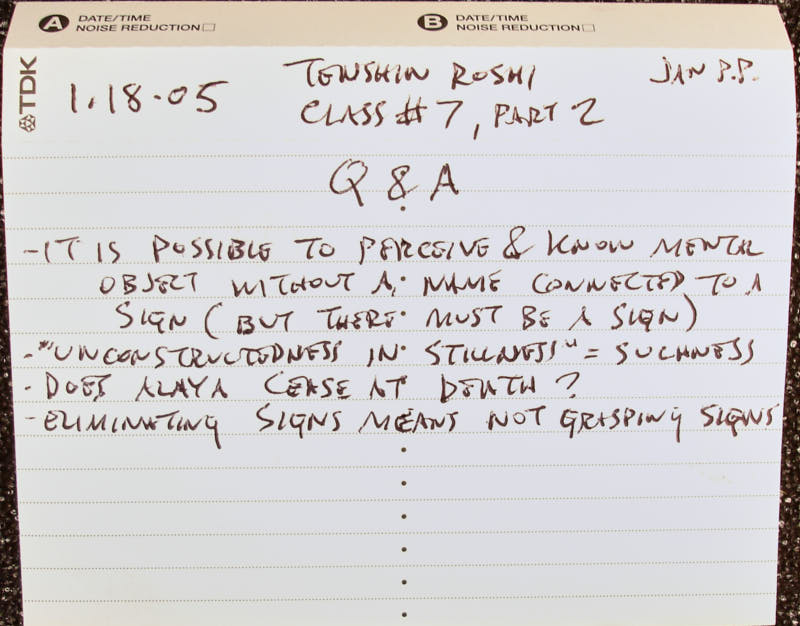 A DATE/TIME
NOISE REDUCTION
B DATE/TIME
NOISE REDUCTION
TDK
1.18.05
TENSHIN ROSHI
JAN P.P.
CLASS #7, PART 2
Q & A
- IT IS POSSIBLE TO PERCEIVE & KNOW MENTAL
OBJECT WITHOUT A NAME CONNECTED TO A
SIGN (BUT THERE MUST BE A SIGN)
- "UNCONSTRUCTEDNESS IN STILLNESS" = SUCHNESS
- DOES ALAYA CEASE AT DEATH?
- ELIMINATING SIGNS MEANS NOT GRASPING SIGNS